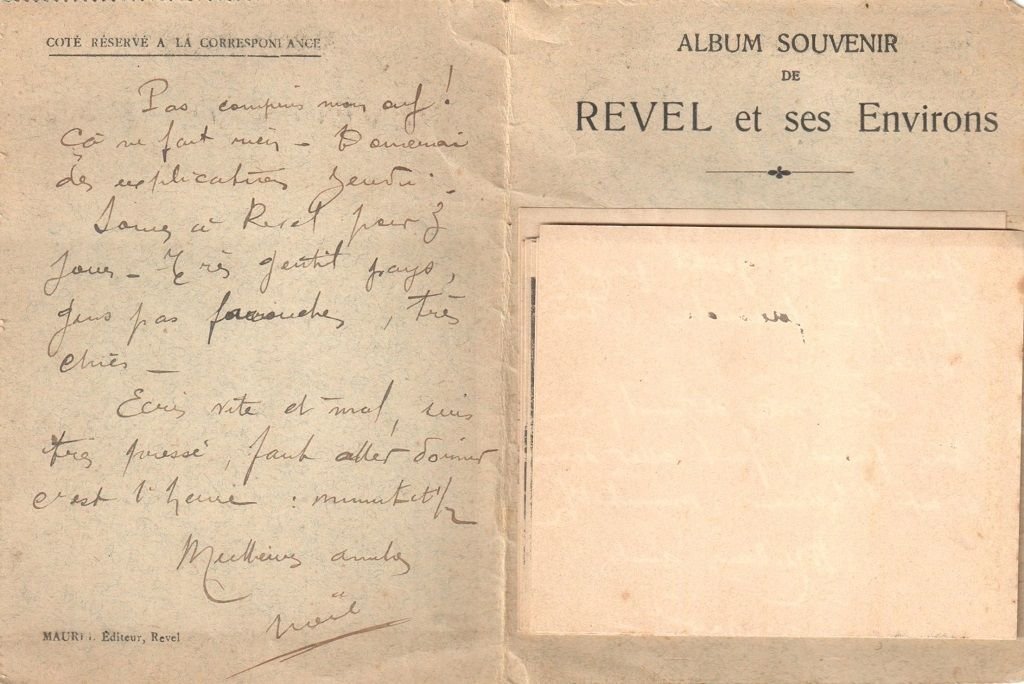 COTÉ RÉSERVÉ A LA CORRESPONDANCE
Pas compris mon
Ça ne fait rien – Donnerai
des explications jeudi.
Sommes à Revel pour 3
jours – Très gentil pays,
gens pas farouches, très
chics –
Ecris vite et mal, suis
très pressé, faut aller dormir
c'est l'heure : minuit et 1/2
Meilleures amitiés
Noël
MAUREL Éditeur, Revel
ALBUM SOUVENIR
DE
REVEL et ses Environs